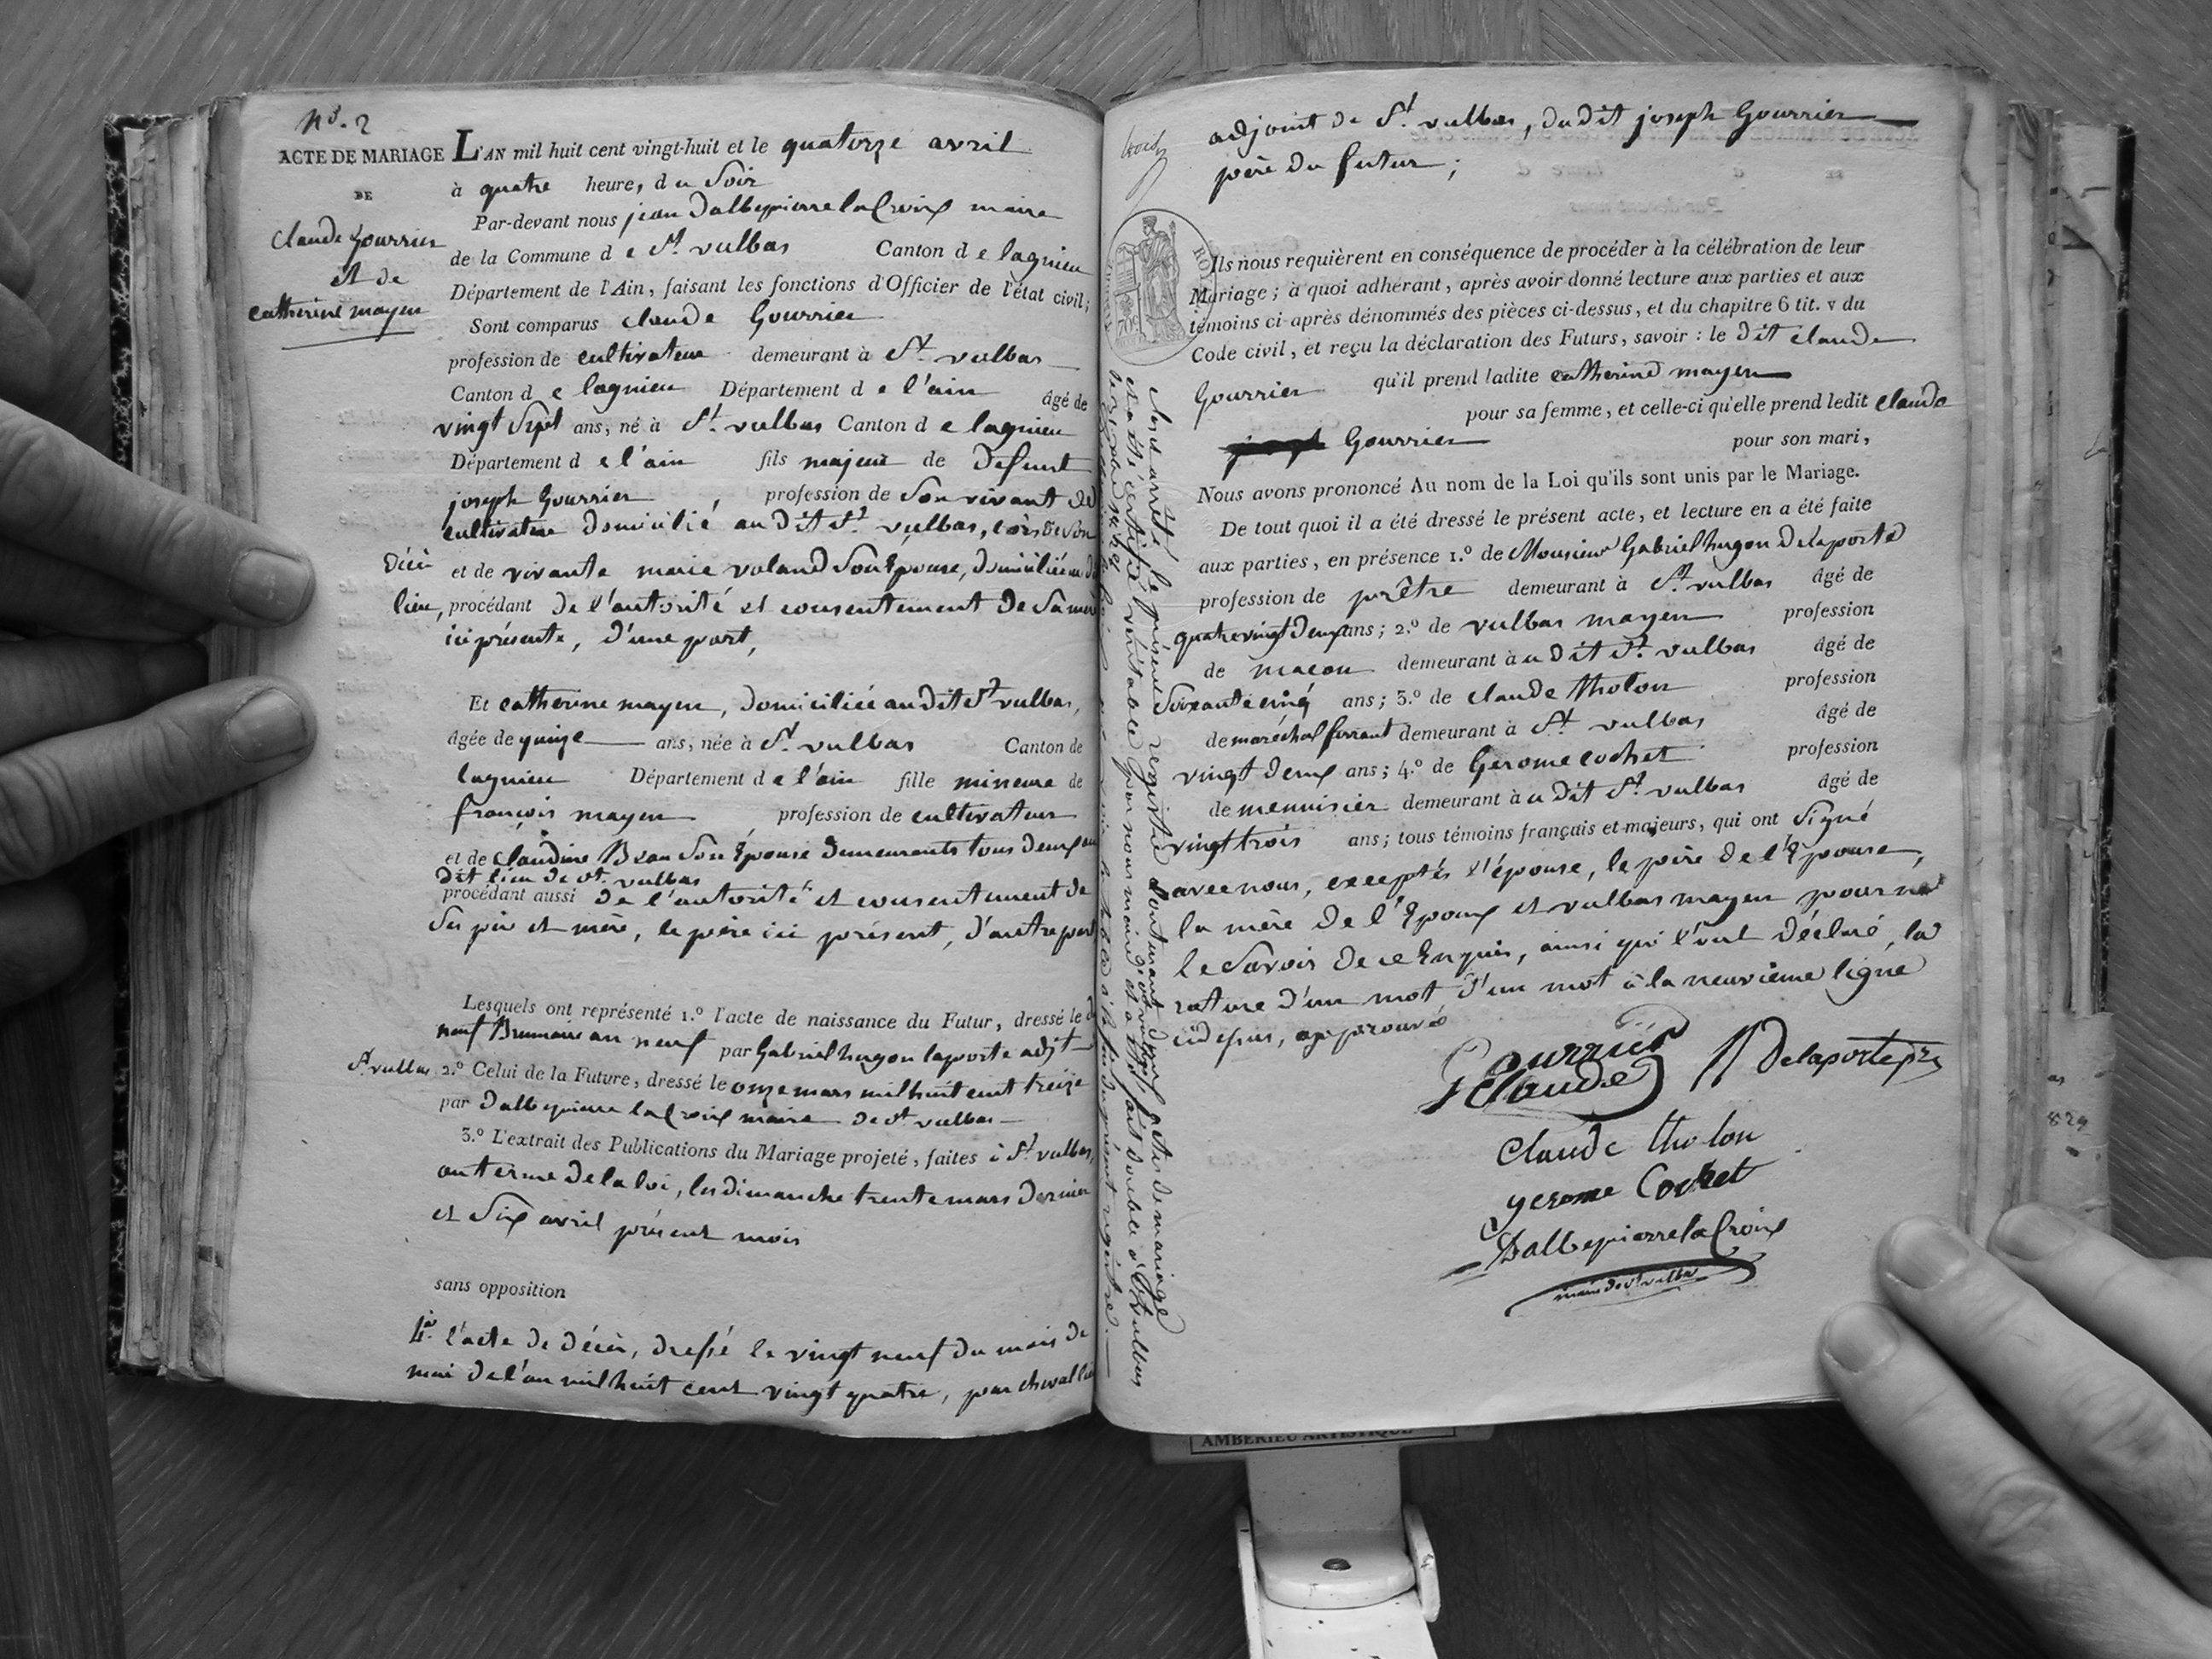 No. 2
ACTE DE MARIAGE
DE
Claude Gourrier
et de
catherine mayen
L'AN mil huit cent vingt-huit et le quatorze avril
à quatre heure, du soir
Par-devant nous jean Dalbepierre la Croix maire
de la Commune de St. vulbas Canton de lagnieu
Département de l'Ain, faisant les fonctions d'Officier de l'état civil;
Sont comparus claude Gourrier
profession de cultivateur demeurant à St. vulbas
Canton de lagnieu Département de l'ain âgé de
vingt sept ans, né à St. vulbas Canton de lagnieu
Département de l'ain fils majeur de defunt
joseph Gourrier, profession de son vivant de
cultivateur domicilié au dit St. vulbas, lors de son
décès et de vivante marie voland son Epouse, domiciliée au dit
lieu, procédant de l'autorité et consentement de sa mère
ici présente, d'une part,
Et catherine mayen, domiciliée au dit St. vulbas,
âgée de quinze ans, née à St. vulbas Canton de
lagnieu Département de l'ain fille mineure de
françois mayen profession de cultivateur
et de Claudine son Epouse demeurants tous deux au
dit lieu de St. vulbas
procédant aussi de l'autorité et consentement de
ses père et mère, le père ici présent, d'autre part
Lesquels ont représenté 1.º l'acte de naissance du Futur, dressé le
neuf Brumaire an neuf par Gabriel hugon laporte adjt
St. vulbas 2.º Celui de la Future, dressé le onze mars mil huit cent treize
par Dalbepierre la Croix maire de St. vulbas
3.º L'extrait des Publications du Mariage projeté, faites à St. vulbas,
au terme de la loi, les dimanche trente mars dernier
et six avril présent mois
sans opposition
4º. l'acte de décès, dressé le vingt neuf du mois de
mai de l'an mil huit cent vingt quatre, par chevallier
adjoint de St. vulbas, du dit joseph Gourrier
père du futur;
Ils nous requièrent en conséquence de procéder à la célébration de leur
Mariage; à quoi adhérant, après avoir donné lecture aux parties et aux
témoins ci-après dénommés des pièces ci-dessus, et du chapitre 6 tit. v du
Code civil, et reçu la déclaration des Futurs, savoir: le dit claude
Gourrier qu'il prend ladite catherine mayen
pour sa femme, et celle-ci qu'elle prend ledit claude
Gourrier pour son mari,
Nous avons prononcé Au nom de la Loi qu'ils sont unis par le Mariage.
De tout quoi il a été dressé le présent acte, et lecture en a été faite
aux parties, en présence 1.º de Monsieur Gabriel hugon delaporte
profession de prêtre demeurant à St. vulbas âgé de
quatrevingt deux ans; 2.º de vulbas mayen profession
de macon demeurant à u dit St. vulbas âgé de
soixante cinq ans; 3.º de claude tholon profession
de maréchal ferrant demeurant à St. vulbas âgé de
vingt deux ans; 4.º de Gerome cochet profession
de menuisier demeurant à u dit St. vulbas âgé de
vingt trois ans; tous témoins français et majeurs, qui ont signé
avec nous, exceptés l'épouse, le père de l'Epouse,
la mère de l'Epoux et vulbas mayen pour ne
le savoir de ce Enquis, ainsi qu'ils l'ont déclaré, la
rature d'un mot, d'un mot à la neuvieme ligne
cidessus, approuvé
Gourrier
Claude
Delaporte ptre
Claude tholon
gerome Cochet
Dalbepierre la Croix
maire de St vulbas
Clos et arrêté le présent registre contenant deux actes de mariage
et a été certifié véritable par nous maire
AMBERIEU ARTISTIQUE
829